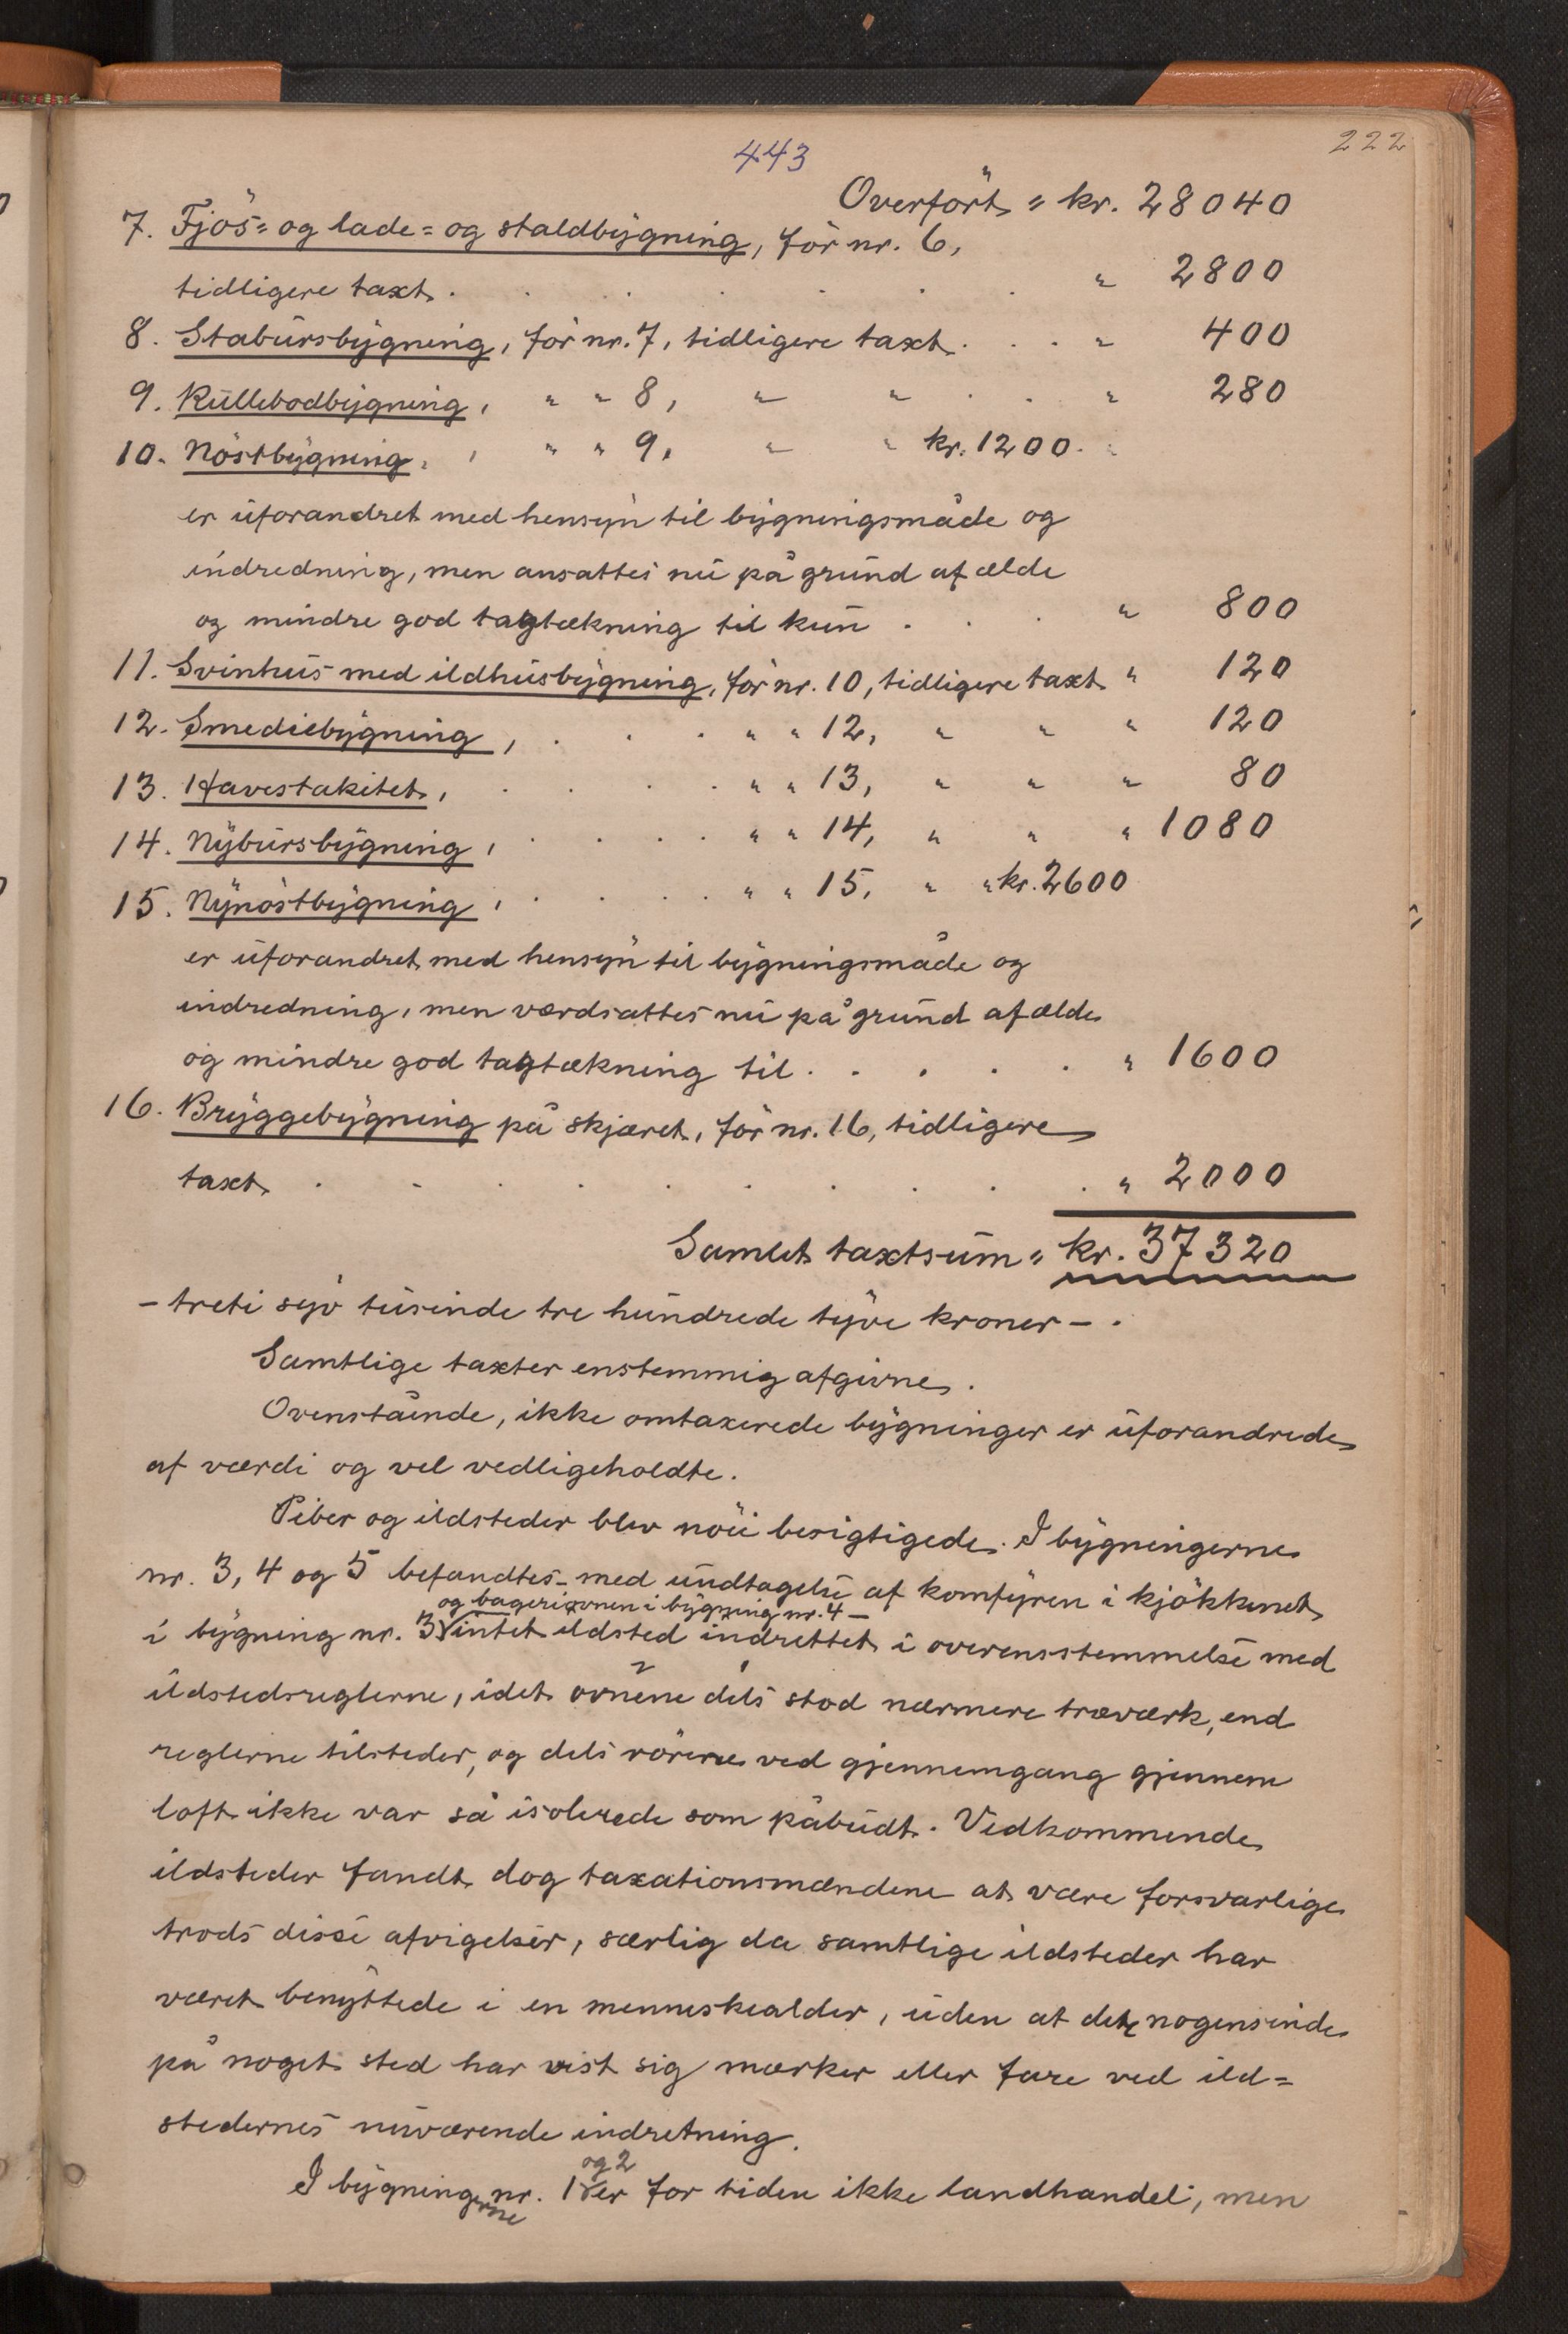 443
222
Overført " kr. 28040
7. Fjøs= og lade= og staldbygning, før nr. 6,
tidligere taxt . . . . . . . " 2800
8. Stabursbygning, før nr. 7, tidligere taxt . . . " 400
9. Kullebodbygning, " " 8, " " . . " 280
10. Nøstbygning, " " 9, " " kr. 1200.
er uforandret med hensyn til bygningsmåde og
indredning, men ansattes nu på grund af ælde
og mindre god tagtækning til kun . . . " 800
11. Svinhus med ildhusbygning, før nr. 10, tidligere taxt " 120
12. Smediebygning, . . . " " 12, " " " 120
13. Havestakitet, . . . . " " 13, " " " 80
14. Nybursbygning, . . . . " " 14, " " " 1080
15. Nynøstbygning, . . . . " " 15, " " kr. 2600
er uforandret med hensyn til bygningsmåde og
indredning, men værdsattes nu på grund af ælde
og mindre god tagtækning til . . . . . " 1600
16. Bryggebygning på skjæret, før nr. 16, tidligere
taxt . . . . . . . . . . " 2000
Samlet taxtsum " kr. 37320
- treti syv tusinde tre hundrede tyve kroner - .
Samtlige taxter enstemmig afgivne.
Ovenstående, ikke omtaxerede bygninger er uforandrede
af værdi og vel vedligeholdte.
Piber og ildsteder blev nøie besigtigede. I bygningerne
nr. 3, 4 og 5 befandtes - med undtagelse af komfyren i kjøkkenet
og bageriovnen i bygning nr. 4 -
i bygning nr. 3 intet ildsted indrettet i overensstemmelse med
ildstedsreglerne, idet ovnene dels stod nærmere træværk, end
reglerne tilsteder, og dels rørene ved gjennemgang gjennem
loft ikke var så isolerede som påbudt. Vedkommende
ildsteder fandt dog taxationsmændene at være forsvarlige
trods disse afvigelser, særlig da samtlige ildsteder har
været benyttede i en menneskealder, uden at det nogensinde
på noget sted har vist sig mærker eller fare ved ild=
stedernes nuværende indretning.
og 2
I bygningerne nr. 1 er for tiden ikke landhandel, men